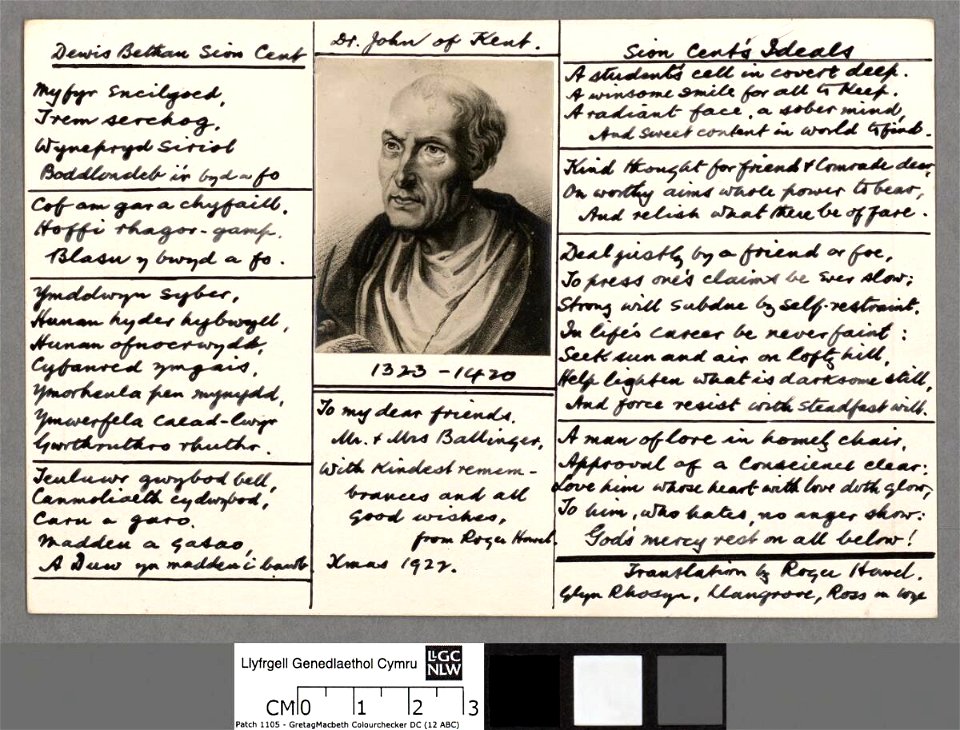 Dewis Bethau Sion Cent
Myfyr Encilgoed,
Trem serchog,
Wynepryd Siriol
Boddlondeb i'r byd a fo
Cof am gar a chyfaill,
Hoffi rhagor-gamp.
Blasu y bwyd a fo.
Ymddwyn Syber,
Hunan hyder hybwyll,
Hunan
Cyfanred ymgais,
Ymorheula pen mynydd,
Ymwerfela caead-lwyn
Gwrthruthro rhuthr.
Teuluwr gwybod bell,
Canmoliaeth cydwybod,
Caru a garo.
Madden a gasao,
A Duw yn madden i bawb
Dr. John of Kent.
1323-1420
To my dear friends,
Mr. & Mrs Ballinger,
With kindest remem-
brances and all
good wishes,
from Roger Howel.
Xmas 1922.
Sion Cent's Ideals
A student's cell in covert deep.
A winsome smile for all to keep.
A radiant face, a sober mind,
And sweet content in world to find.
Kind thought for friend & Comrade dear,
On worthy aims whole power to bear,
And relish what there be of fare.
Deal justly by a friend or foe,
To press one's claims be ever slow;
Strong will subdue by self-restraint.
In life's career be never faint:
Seek sun and air on lofty hill,
Help lighten what is darksome still,
And force resist with steadfast will.
A man of lore in homely chair,
Approval of a Conscience clear:
Love him whose heart with love doth glow,
To him, who hates, no anger show:
God's mercy rest on all below!
Translation by Roger Howel.
Glyn Rhosyn, Llangrove, Ross on Wye
Llyfrgell Genedlaethol Cymru
LLGC
NLW
CM 0 1 2 3
Patch 1105 - GretagMacbeth Colourchecker DC (12 ABC)